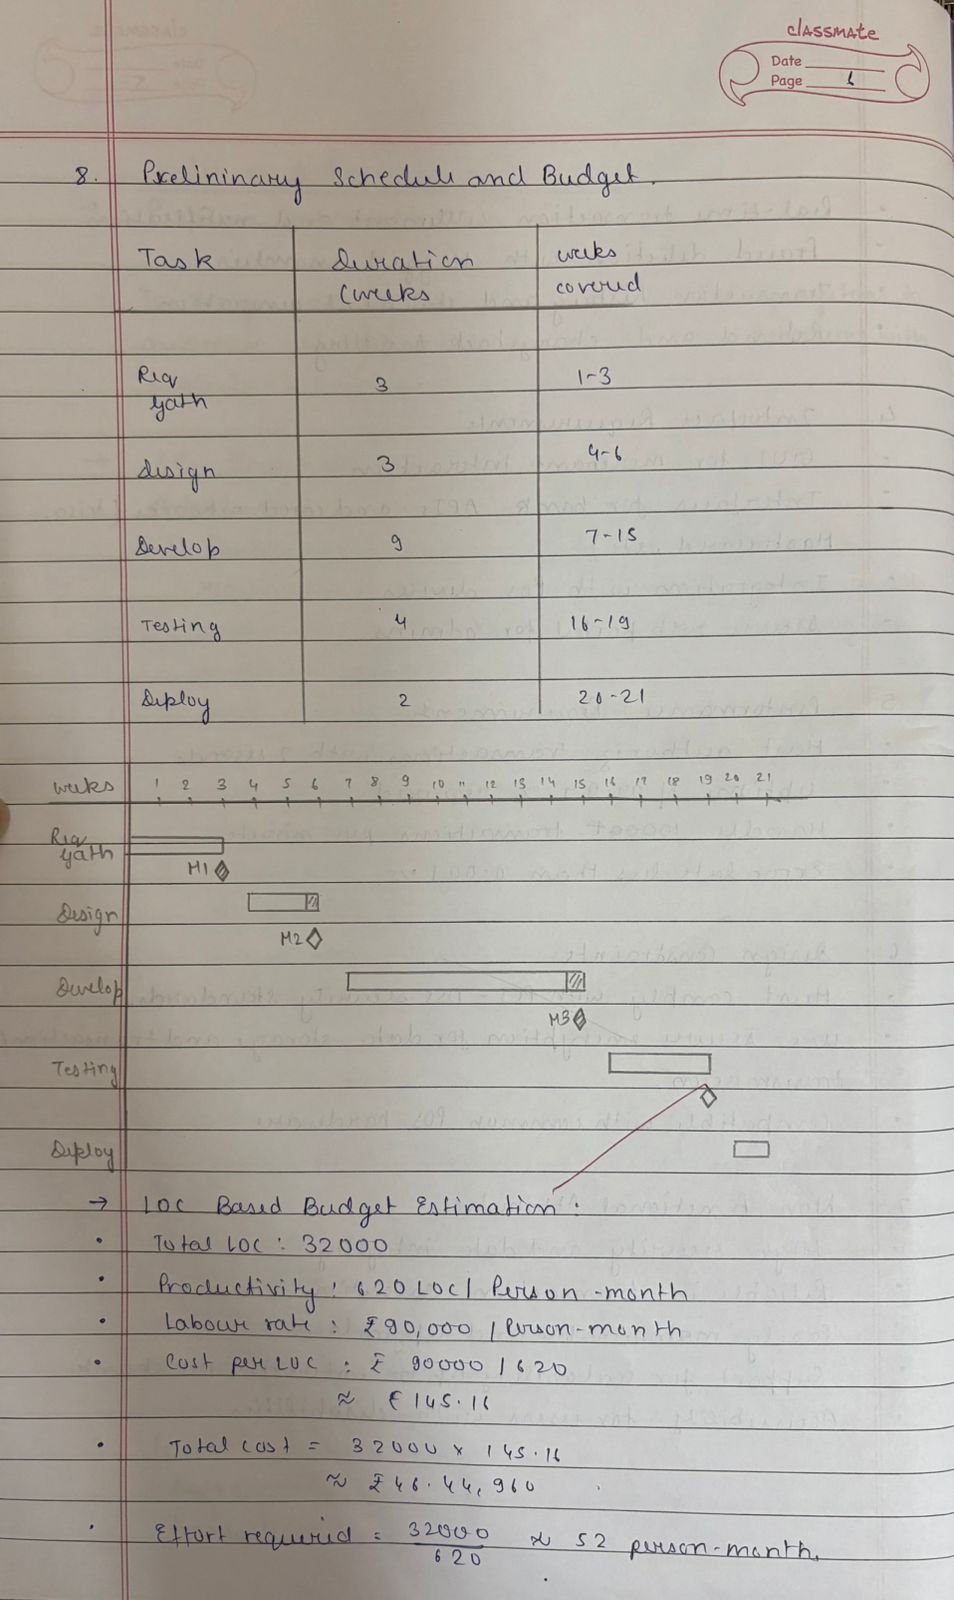 classmate
Date
Page 6
8. Prelininary Schedule and Budget.
Task Duration weeks
(weeks covered
Req 3 1-3
gath
Design 3 4-6
Develop 9 7-15
Testing 4 16-19
Deploy 2 20-21
weeks 1 2 3 4 5 6 7 8 9 10 11 12 13 14 15 16 17 18 19 20 21
Req
gath
M1
Design
M2
Develop
M3
Testing
Deploy
→ LOC Based Budget Estimation:
• Total LOC : 32000
• Productivity : 620 LOC / Person-month
• Labour rate : ₹90,000 / Person-month
• Cost per LOC : ₹ 90000 / 620
≈ ₹145.16
• Total cost = 32000 x 145.16
≈ ₹46.44,960
• Effort required = 32000/620 ≈ 52 person-month.